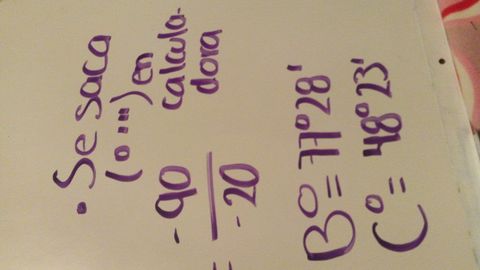 • Se saca
(o ' ") en
calcula-
dora
-90
= -20
B° = 77° 28'
C° = 48° 23'